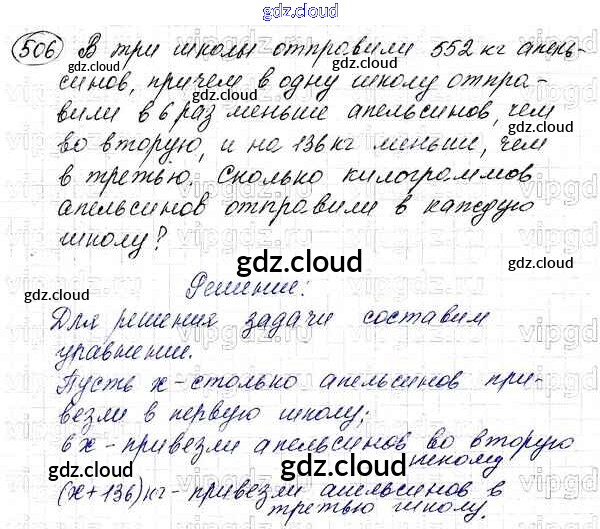 gdz.cloud
506 В три школы отправили 552 кг апель-
gdz.cloud gdz.cloud
синов, причем в одну школу отпра-
вили в 6 раз меньше апельсинов, чем
gdz.cloud
во вторую, и на 136 кг меньше, чем
в третью. Сколько килограммов
vipgdz
апельсинов отправили в каждую
школу?
gdz.cloud
gdz.cloud
Решение:
gdz.cloud
Для решения задачи составим
уравнение.
Пусть x - столько апельсинов при-
везли в первую школу;
6x - привезли апельсинов во вторую
школу
gdz.cloud gdz.cloud
(x+136) кг - привезли апельсинов в
третью школу.
gdz.cloud